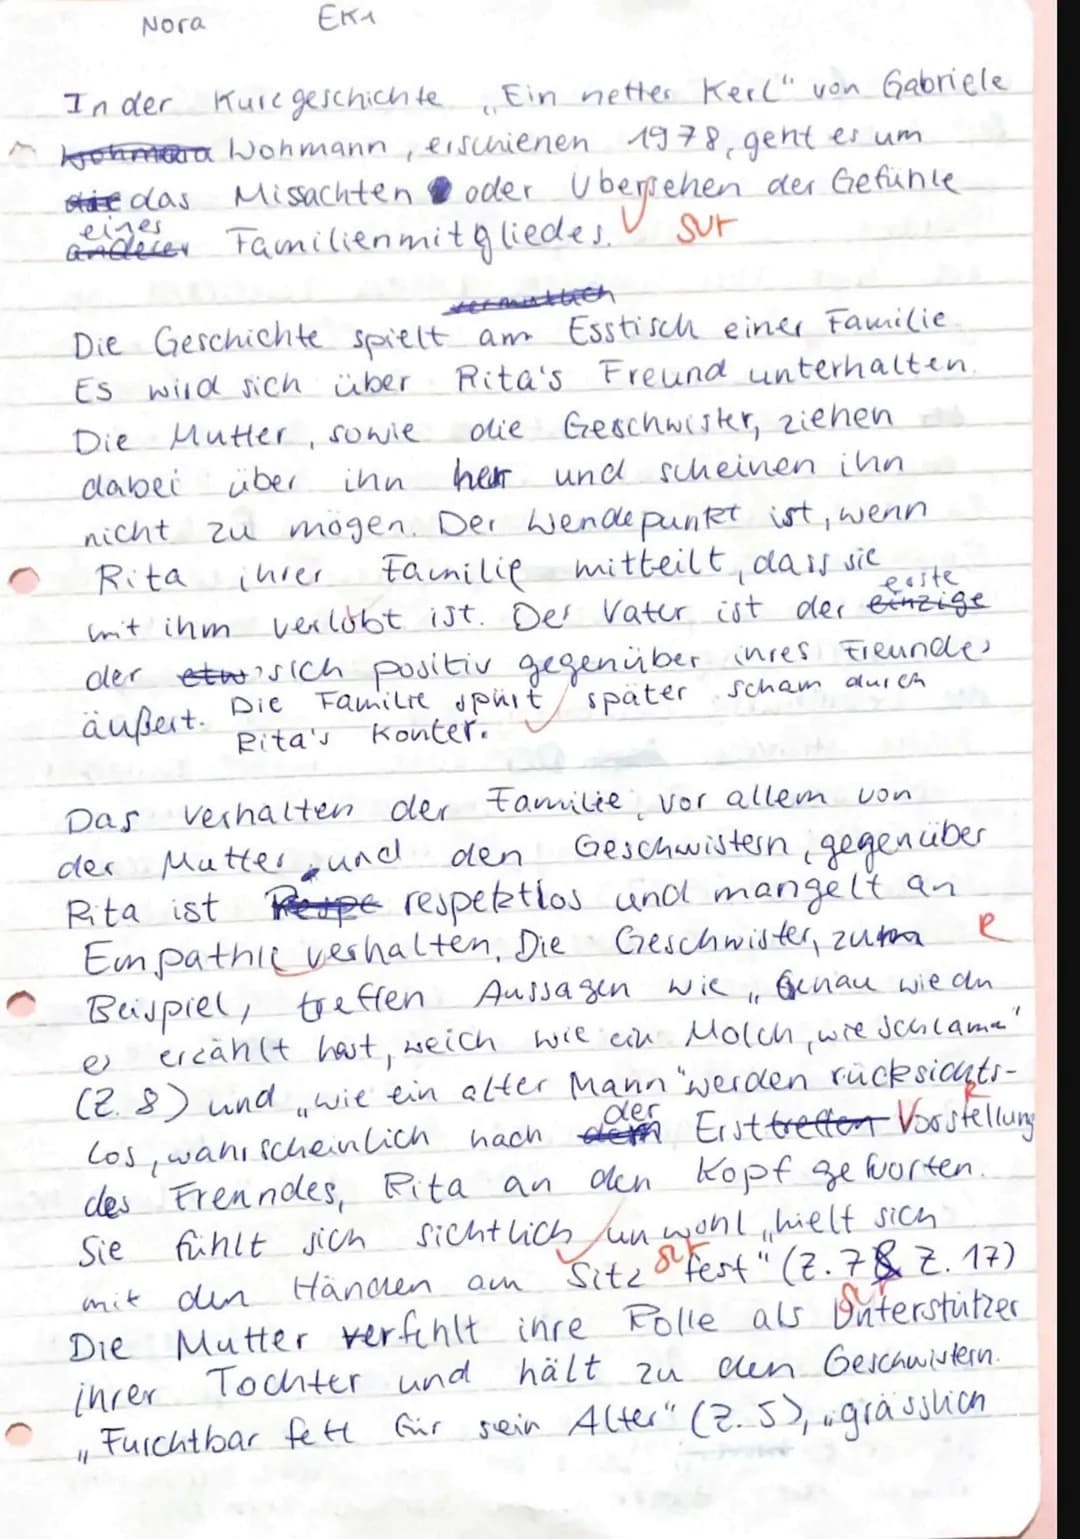 Nora EK1
In der Kurzgeschichte „Ein netter Kerl" von Gabriele
Wohmann, erschienen 1978, geht es um
das Missachten oder Übersehen der Gefühle
eines Familienmitgliedes.
Die Geschichte spielt am Esstisch einer Familie.
Es wird sich über Rita's Freund unterhalten.
Die Mutter, sowie die Geschwister, ziehen
dabei über ihn her und scheinen ihn
nicht zu mögen. Der Wendepunkt ist, wenn
Rita ihrer Familie mitteilt, dass sie
mit ihm verlobt ist. Der Vater ist der erste
der sich positiv gegenüber ihres Freundes
äußert. Die Familie spürt später scham durch
Rita's Konter.
Das verhalten der Familie, vor allem von
der Mutter und den Geschwistern, gegenüber
Rita ist respektlos und mangelt an
Empathie verhalten. Die Geschwister, zum R
Beispiel, treffen Aussagen wie „Genau wie du
es erzählt hast, weich wie ein Molch, wie Schlamm"
(Z. 8) und „wie ein alter Mann" werden rücksichts-
los, wahrscheinlich nach der Erst Vorstellung R
des Freundes, Rita an den Kopf geworfen.
Sie fühlt sich sichtlich unwohl „hielt sich
mit den Händen am Sitz fest" (Z. 7 & Z. 17)
Die Mutter verfehlt ihre Rolle als Unterstützer
ihrer Tochter und hält zu den Geschwistern.
„Furchtbar fett für sein Alter" (Z. 5), „grässlich